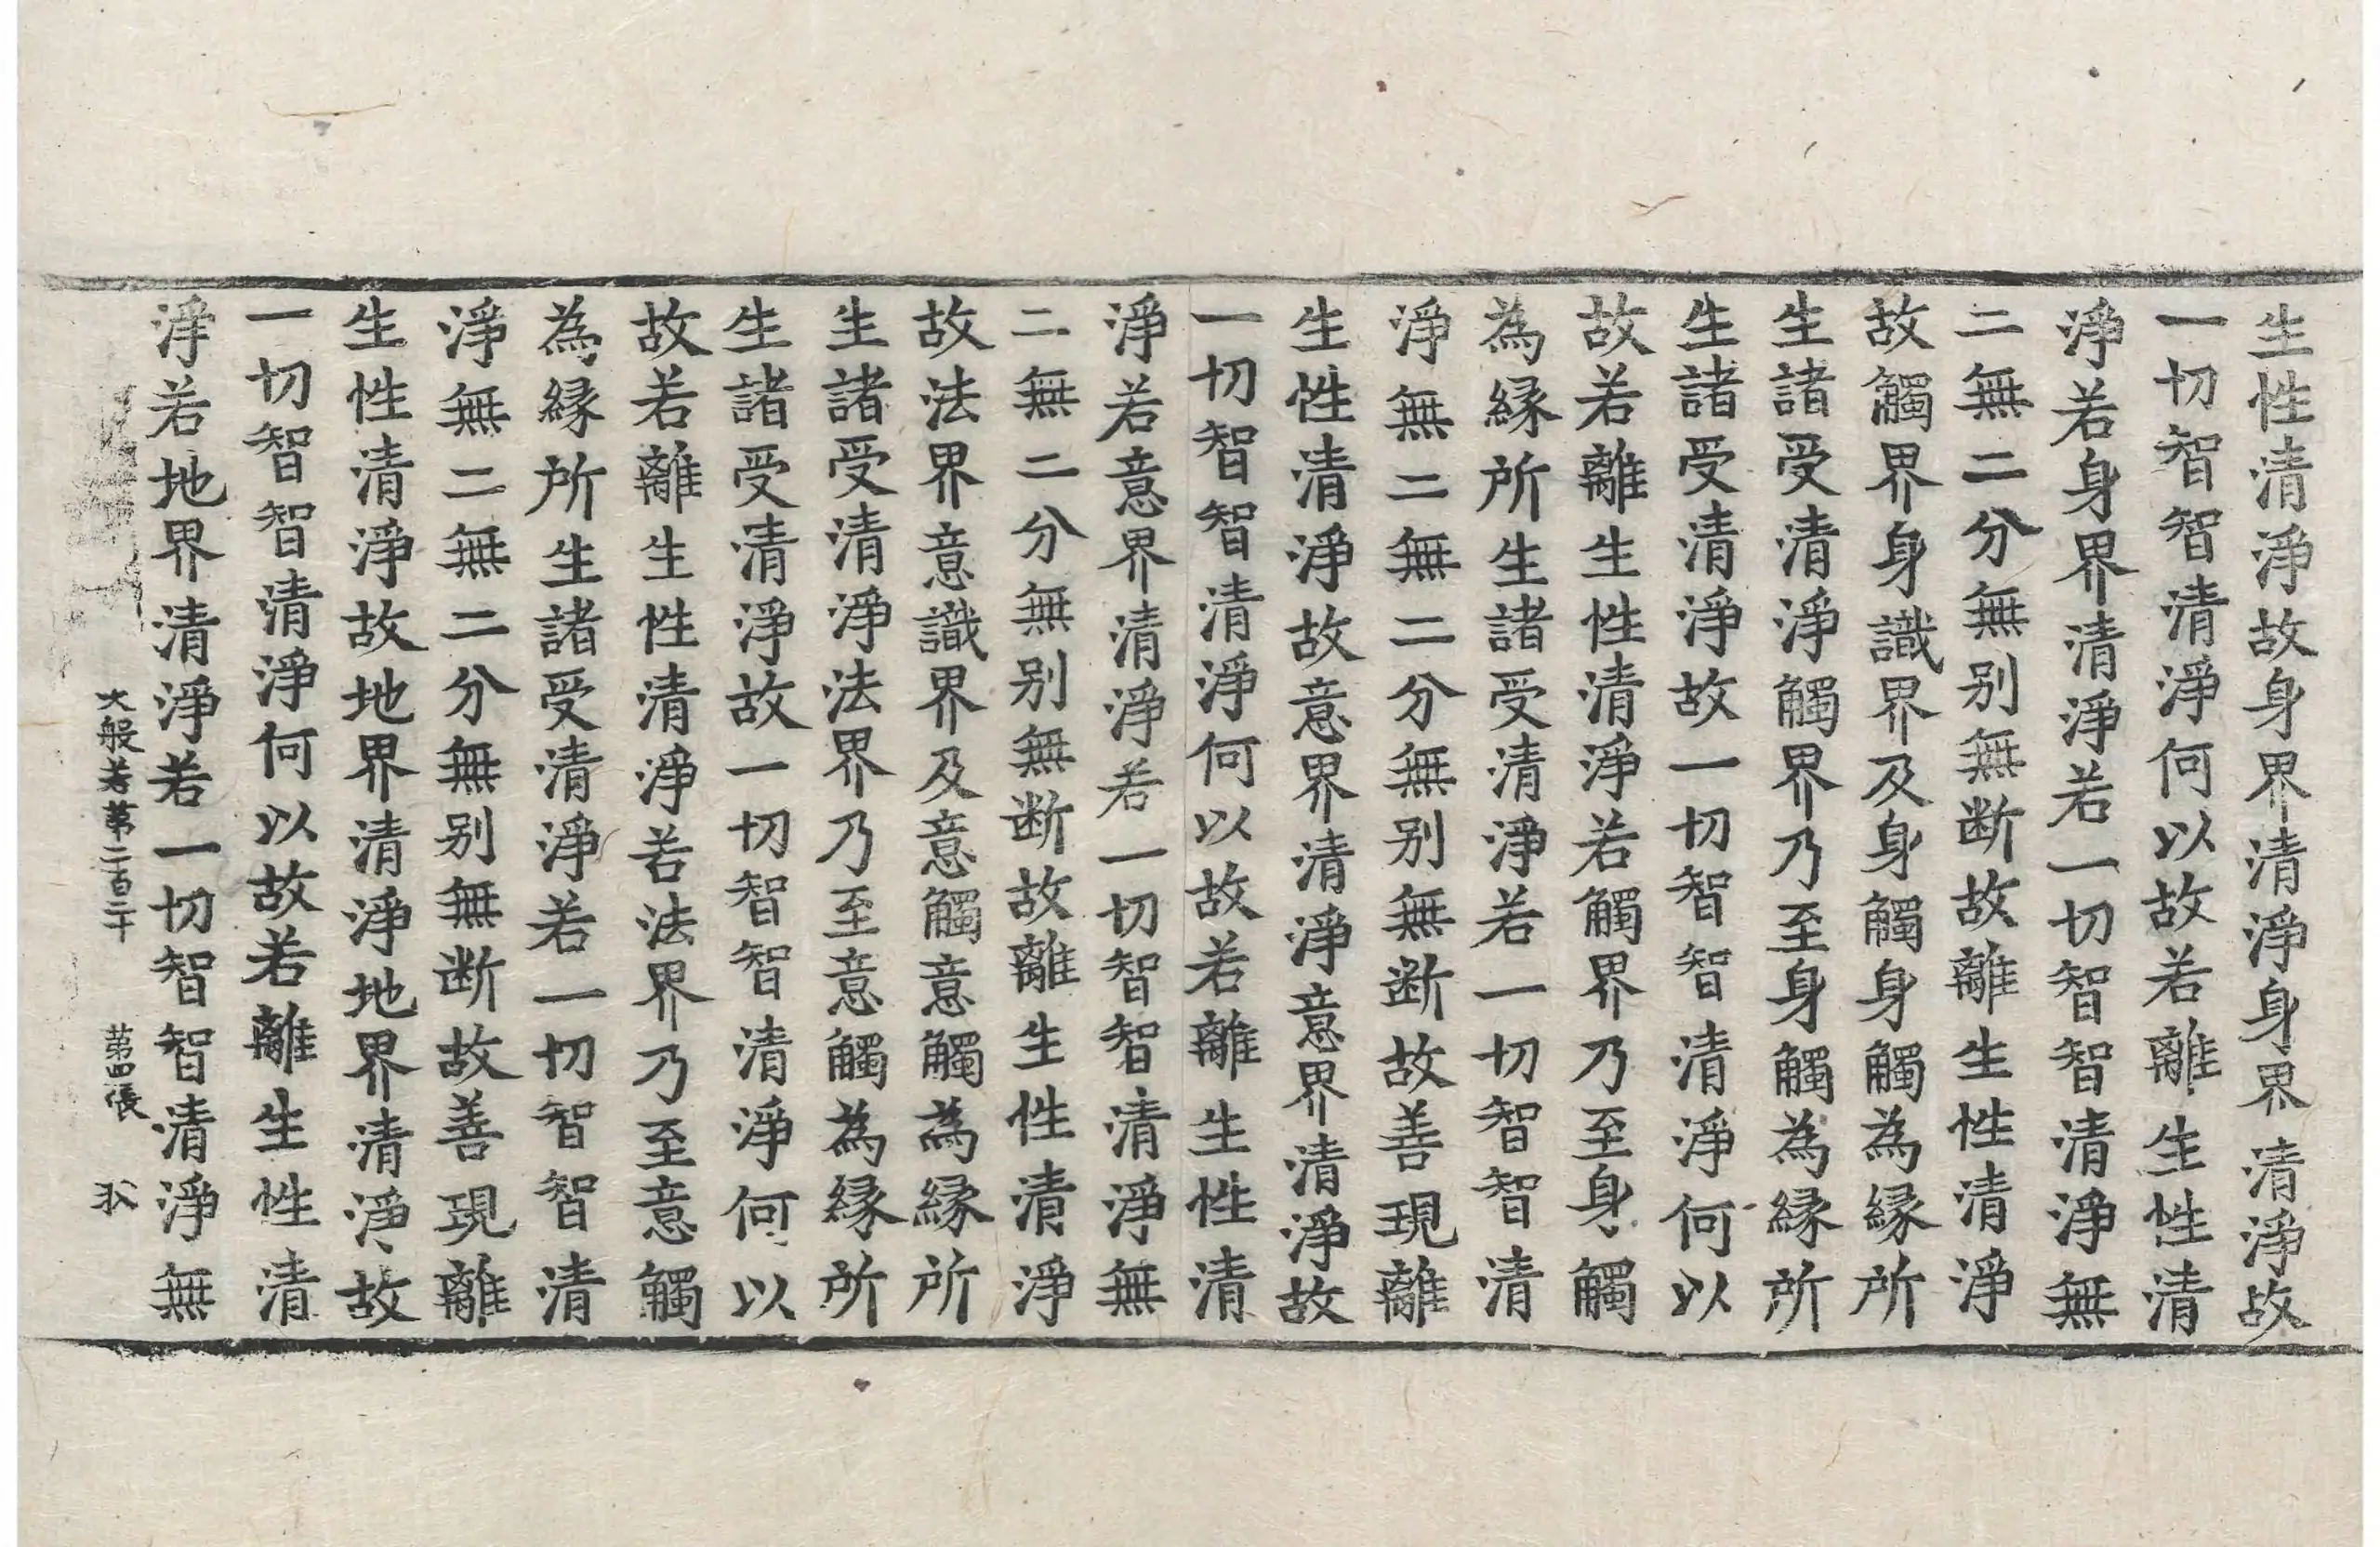 生性清淨故身界清淨身界清淨故
一切智智清淨何以故若離生性清
淨若身界清淨若一切智智清淨無
二無二分無别無断故離生性清淨
故觸界身識界及身觸身觸為緣所
生諸受清淨觸界乃至身觸為緣所
生諸受清淨故一切智智清淨何以
故若離生性清淨若觸界乃至身觸
為緣所生諸受清淨若一切智智清
淨無二無二分無别無断故善現離
生性清淨故意界清淨意界清淨故
一切智智清淨何以故若離生性清
淨若意界清淨若一切智智清淨無
二無二分無别無断故離生性清淨
故法界意識界及意觸意觸為緣所
生諸受清淨法界乃至意觸為緣所
生諸受清淨故一切智智清淨何以
故若離生性清淨若法界乃至意觸
為緣所生諸受清淨若一切智智清
淨無二無二分無别無断故善現離
生性清淨故地界清淨地界清淨故
一切智智清淨何以故若離生性清
淨若地界清淨若一切智智清淨無
大般若第二百二十 第四張